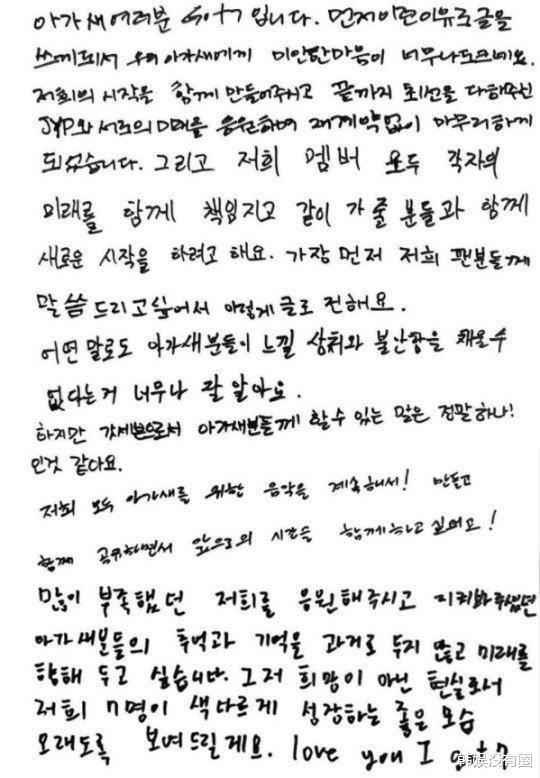 아가새여러분 Got7 입니다. 먼저이런이유로글을
쓰게되서 우리 아가새에게 미안한마음이 너무나도크네요.
저희의 시작을 함께 만들어주시고 끝까지 최선을 다해주신
JYP와 서로의 미래를 응원하며 재계약없이 마무리하게
되었습니다. 그리고 저희 멤버 모두 각자의
미래를 함께 책임지고 같이 가 줄 분들과 함께
새로운 시작을 하려고 해요. 가장 먼저 저희 팬분들께
말씀 드리고싶어서 이렇게 글로 전해요.
어떤 말로도 아가새분들이 느낄 상처와 불안감을 채울수
없다는거 너무나 잘 알아요.
하지만 갓세븐으로서 아가새분들께 할수 있는 말은 정말하나!
인것 같다요.
저희 모두 아가새를 위한 음악을 계속해서! 만들고
함께 공유하면서 앞으로의 시간을 함께하고싶어요!
많이 부족했던 저희를 응원해주시고 지켜봐주셨던
아가새분들의 추억과 기억을 과거로 두지 않고 미래를
향해 두고 싶습니다. 그저 희망이 아닌 현실로서
저희 7명이 색다르게 성장하는 좋은 모습
오래도록 보여드릴게요. love you I got7
韩娱没有圈